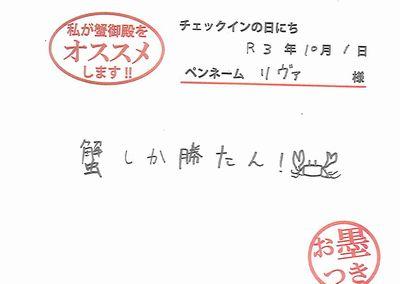 私が蟹御殿を
オススメ
します!!
チェックインの日にち
R3年10月1日
ペンネーム リヴァ 様
蟹しか勝たん!
お墨
つき